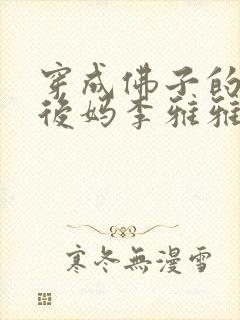 穿成佛子的
後妈李雅雅
寒冬無漫雪